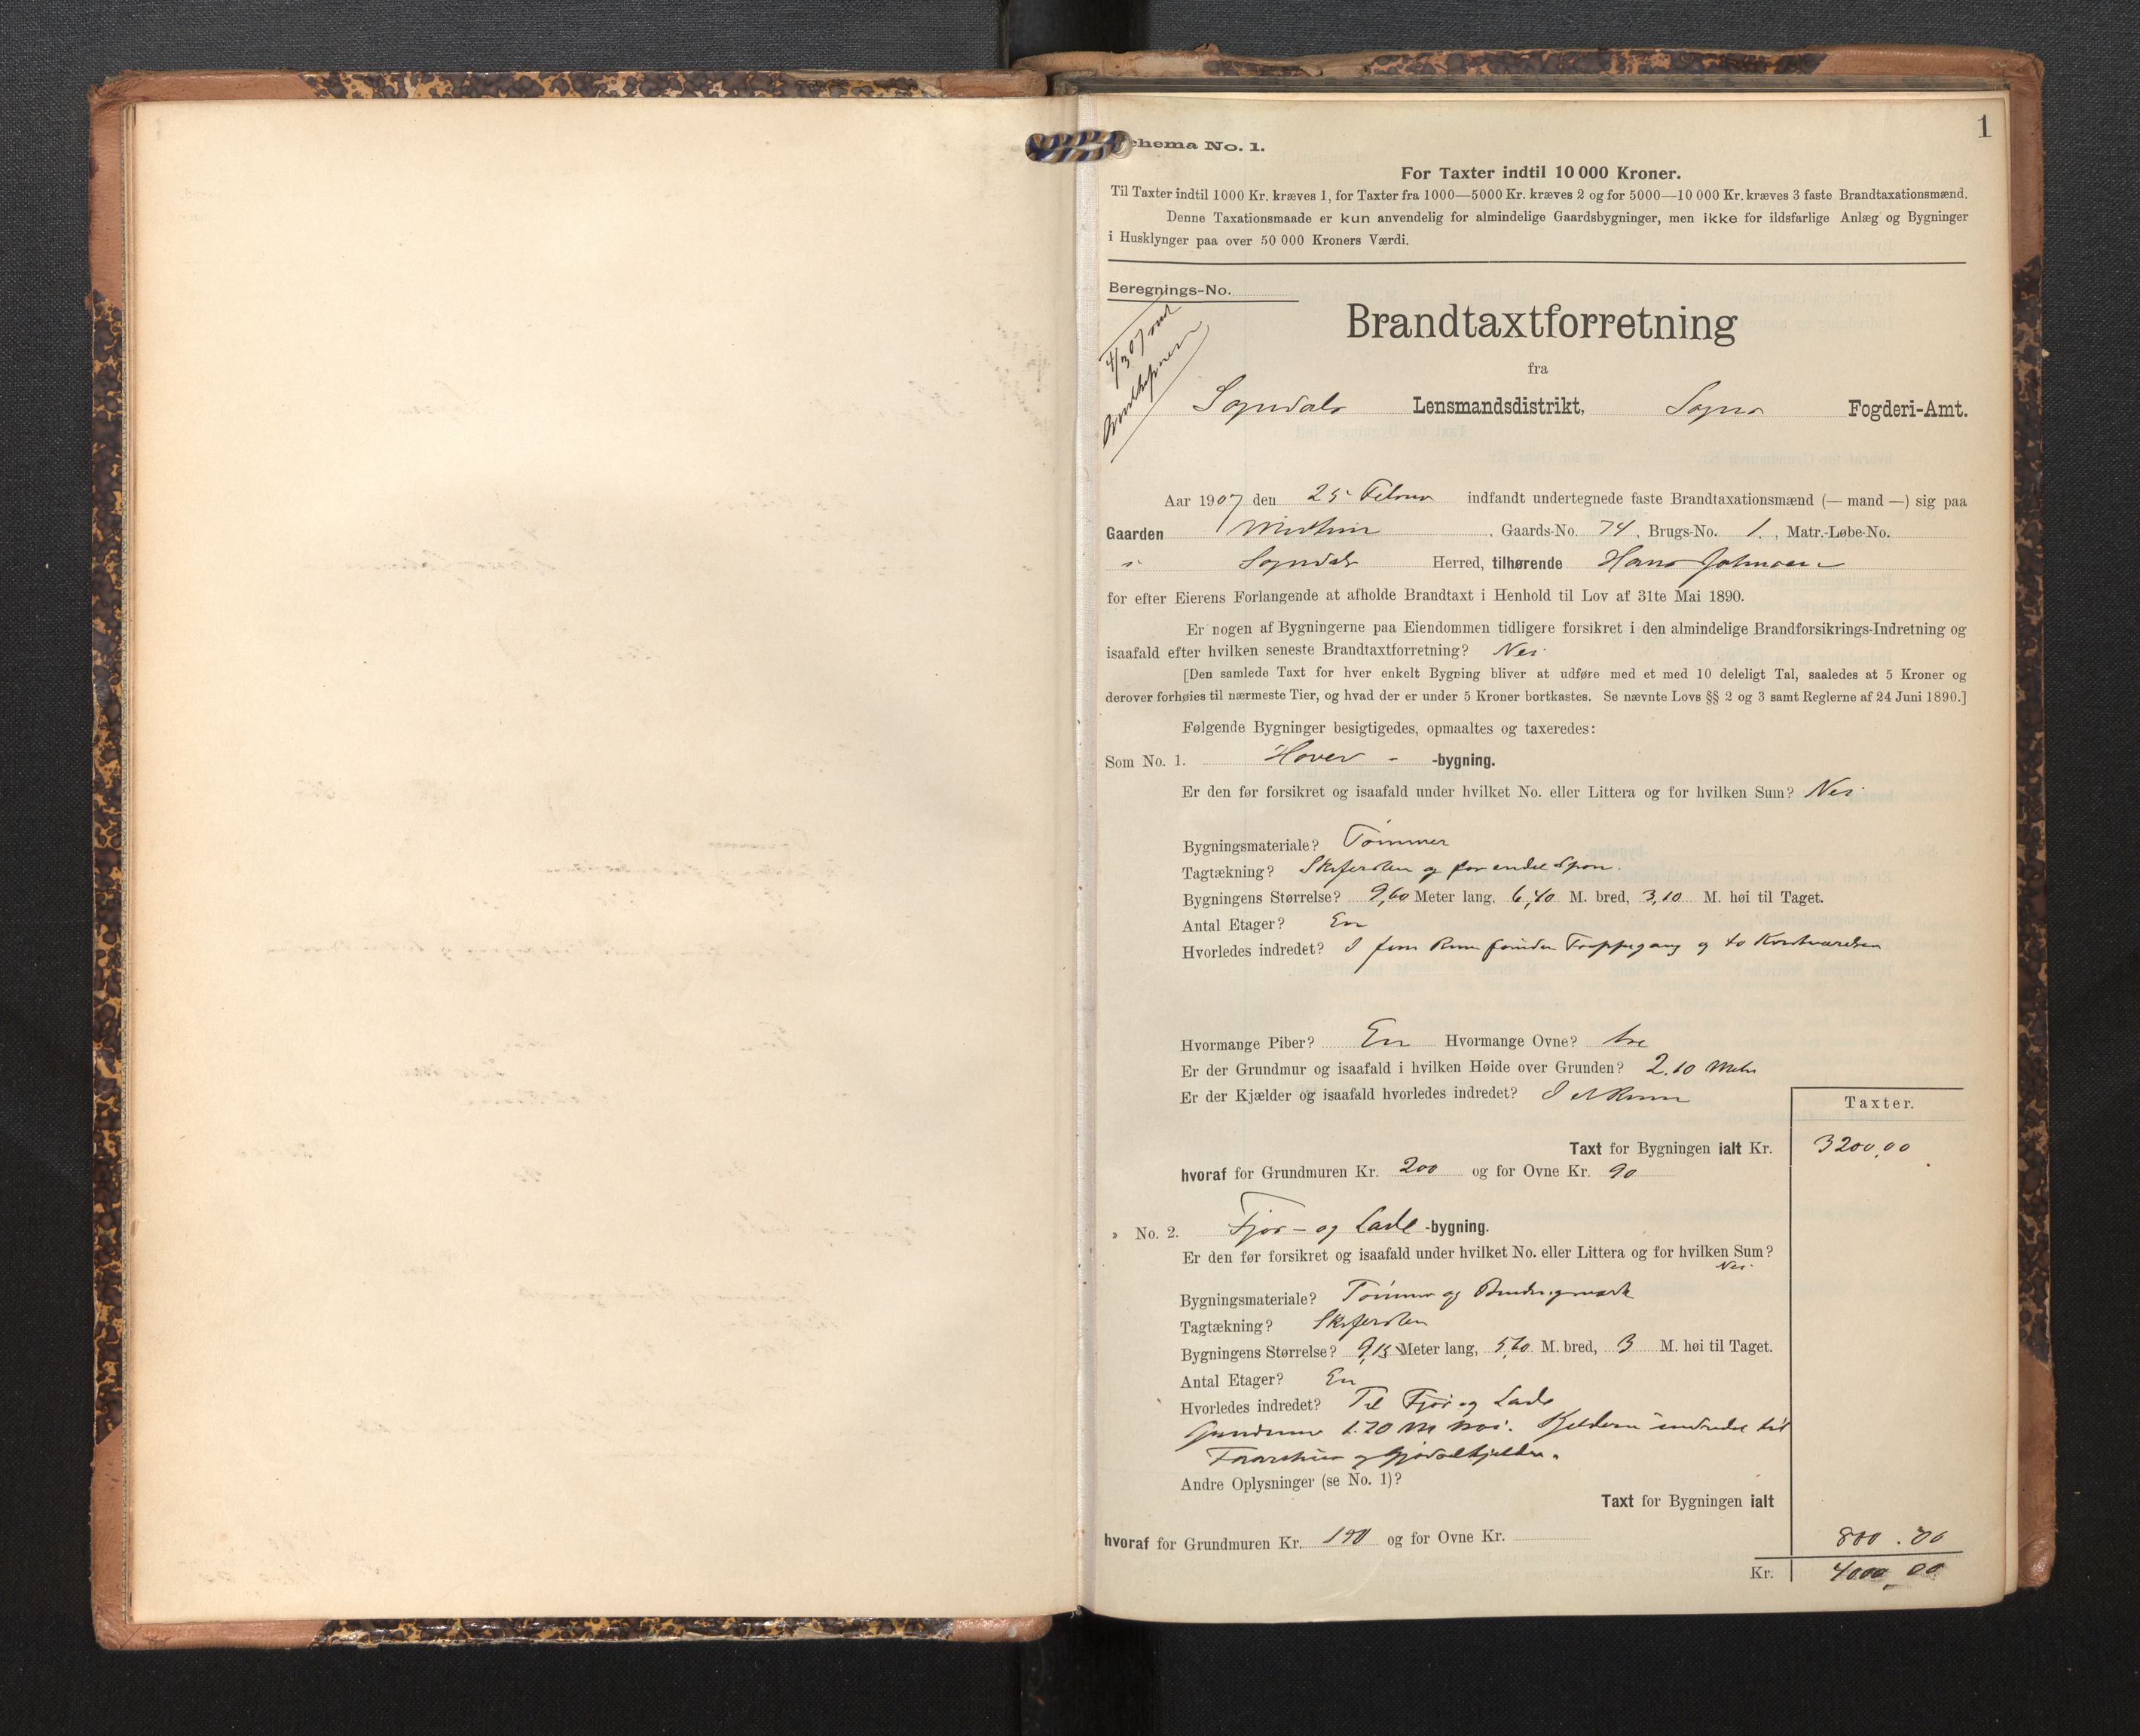 1
chema No. 1.
For Taxter indtil 10 000 Kroner.
Til Taxter indtil 1000 Kr. kræves 1, for Taxter fra 1000—5000 Kr. kræves 2 og for 5000—10 000 Kr. kræves 3 faste Brandtaxationsmænd.
Denne Taxationsmaade er kun anvendelig for almindelige Gaardsbygninger, men ikke for ildsfarlige Anlæg og Bygninger
i Husklynger paa over 50 000 Kroners Værdi.
Beregnings-No.
4/3 07
Brandtaxtforretning
fra
Sogndals Lensmandsdistrikt, Sogns Fogderi-Amt.
Aar 1907 den 25 Februar indfandt undertegnede faste Brandtaxationsmænd (— mand —) sig paa
Gaarden , Gaards-No. 74, Brugs-No. 1., Matr.-Løbe-No.
i Sogndals Herred, tilhørende Hans Johnsen
for efter Eierens Forlangende at afholde Brandtaxt i Henhold til Lov af 31te Mai 1890.
Er nogen af Bygningerne paa Eiendommen tidligere forsikret i den almindelige Brandforsikrings-Indretning og
isaafald efter hvilken seneste Brandtaxtforretning? Nei
[Den samlede Taxt for hver enkelt Bygning bliver at udføre med et med 10 deleligt Tal, saaledes at 5 Kroner og
derover forhøies til nærmeste Tier, og hvad der er under 5 Kroner bortkastes. Se nævnte Lovs §§ 2 og 3 samt Reglerne af 24 Juni 1890.]
Følgende Bygninger besigtigedes, opmaaltes og taxeredes:
Som No. 1. Hoved - -bygning.
Er den før forsikret og isaafald under hvilket No. eller Littera og for hvilken Sum? Nei
Bygningsmateriale? Tømmer
Tagtækning? Skifersten og for endel Spon.
Bygningens Størrelse? 9,60 Meter lang, 6,40 M. bred, 3,10 M. høi til Taget.
Antal Etager? En
Hvorledes indredet? I fem Rum foruden Trappegang og to Kvistværelser
Hvormange Piber? En Hvormange Ovne? tre
Er der Grundmur og isaafald i hvilken Høide over Grunden? 2.10 Meter
Er der Kjælder og isaafald hvorledes indredet? I et Rum
Taxter.
Taxt for Bygningen ialt Kr. 3200,00
hvoraf for Grundmuren Kr. 200 og for Ovne Kr. 90
» No. 2. Fjøs- og Lade -bygning.
Er den før forsikret og isaafald under hvilket No. eller Littera og for hvilken Sum?
Nei
Bygningsmateriale? Tømmer og Bindingsværk
Tagtækning? Skifersten
Bygningens Størrelse? 9,15 Meter lang, 5,60 M. bred, 3 M. høi til Taget.
Antal Etager? En
Hvorledes indredet? Til Fjøs og Lade
Grundmur 1.70 M høi. Kjelderen indredet til
Faarehus og Gjødselkjelder.
Andre Oplysninger (se No. 1)?
Taxt for Bygningen ialt
hvoraf for Grundmuren Kr. 190 og for Ovne Kr. 800.00
Kr. 4000,00